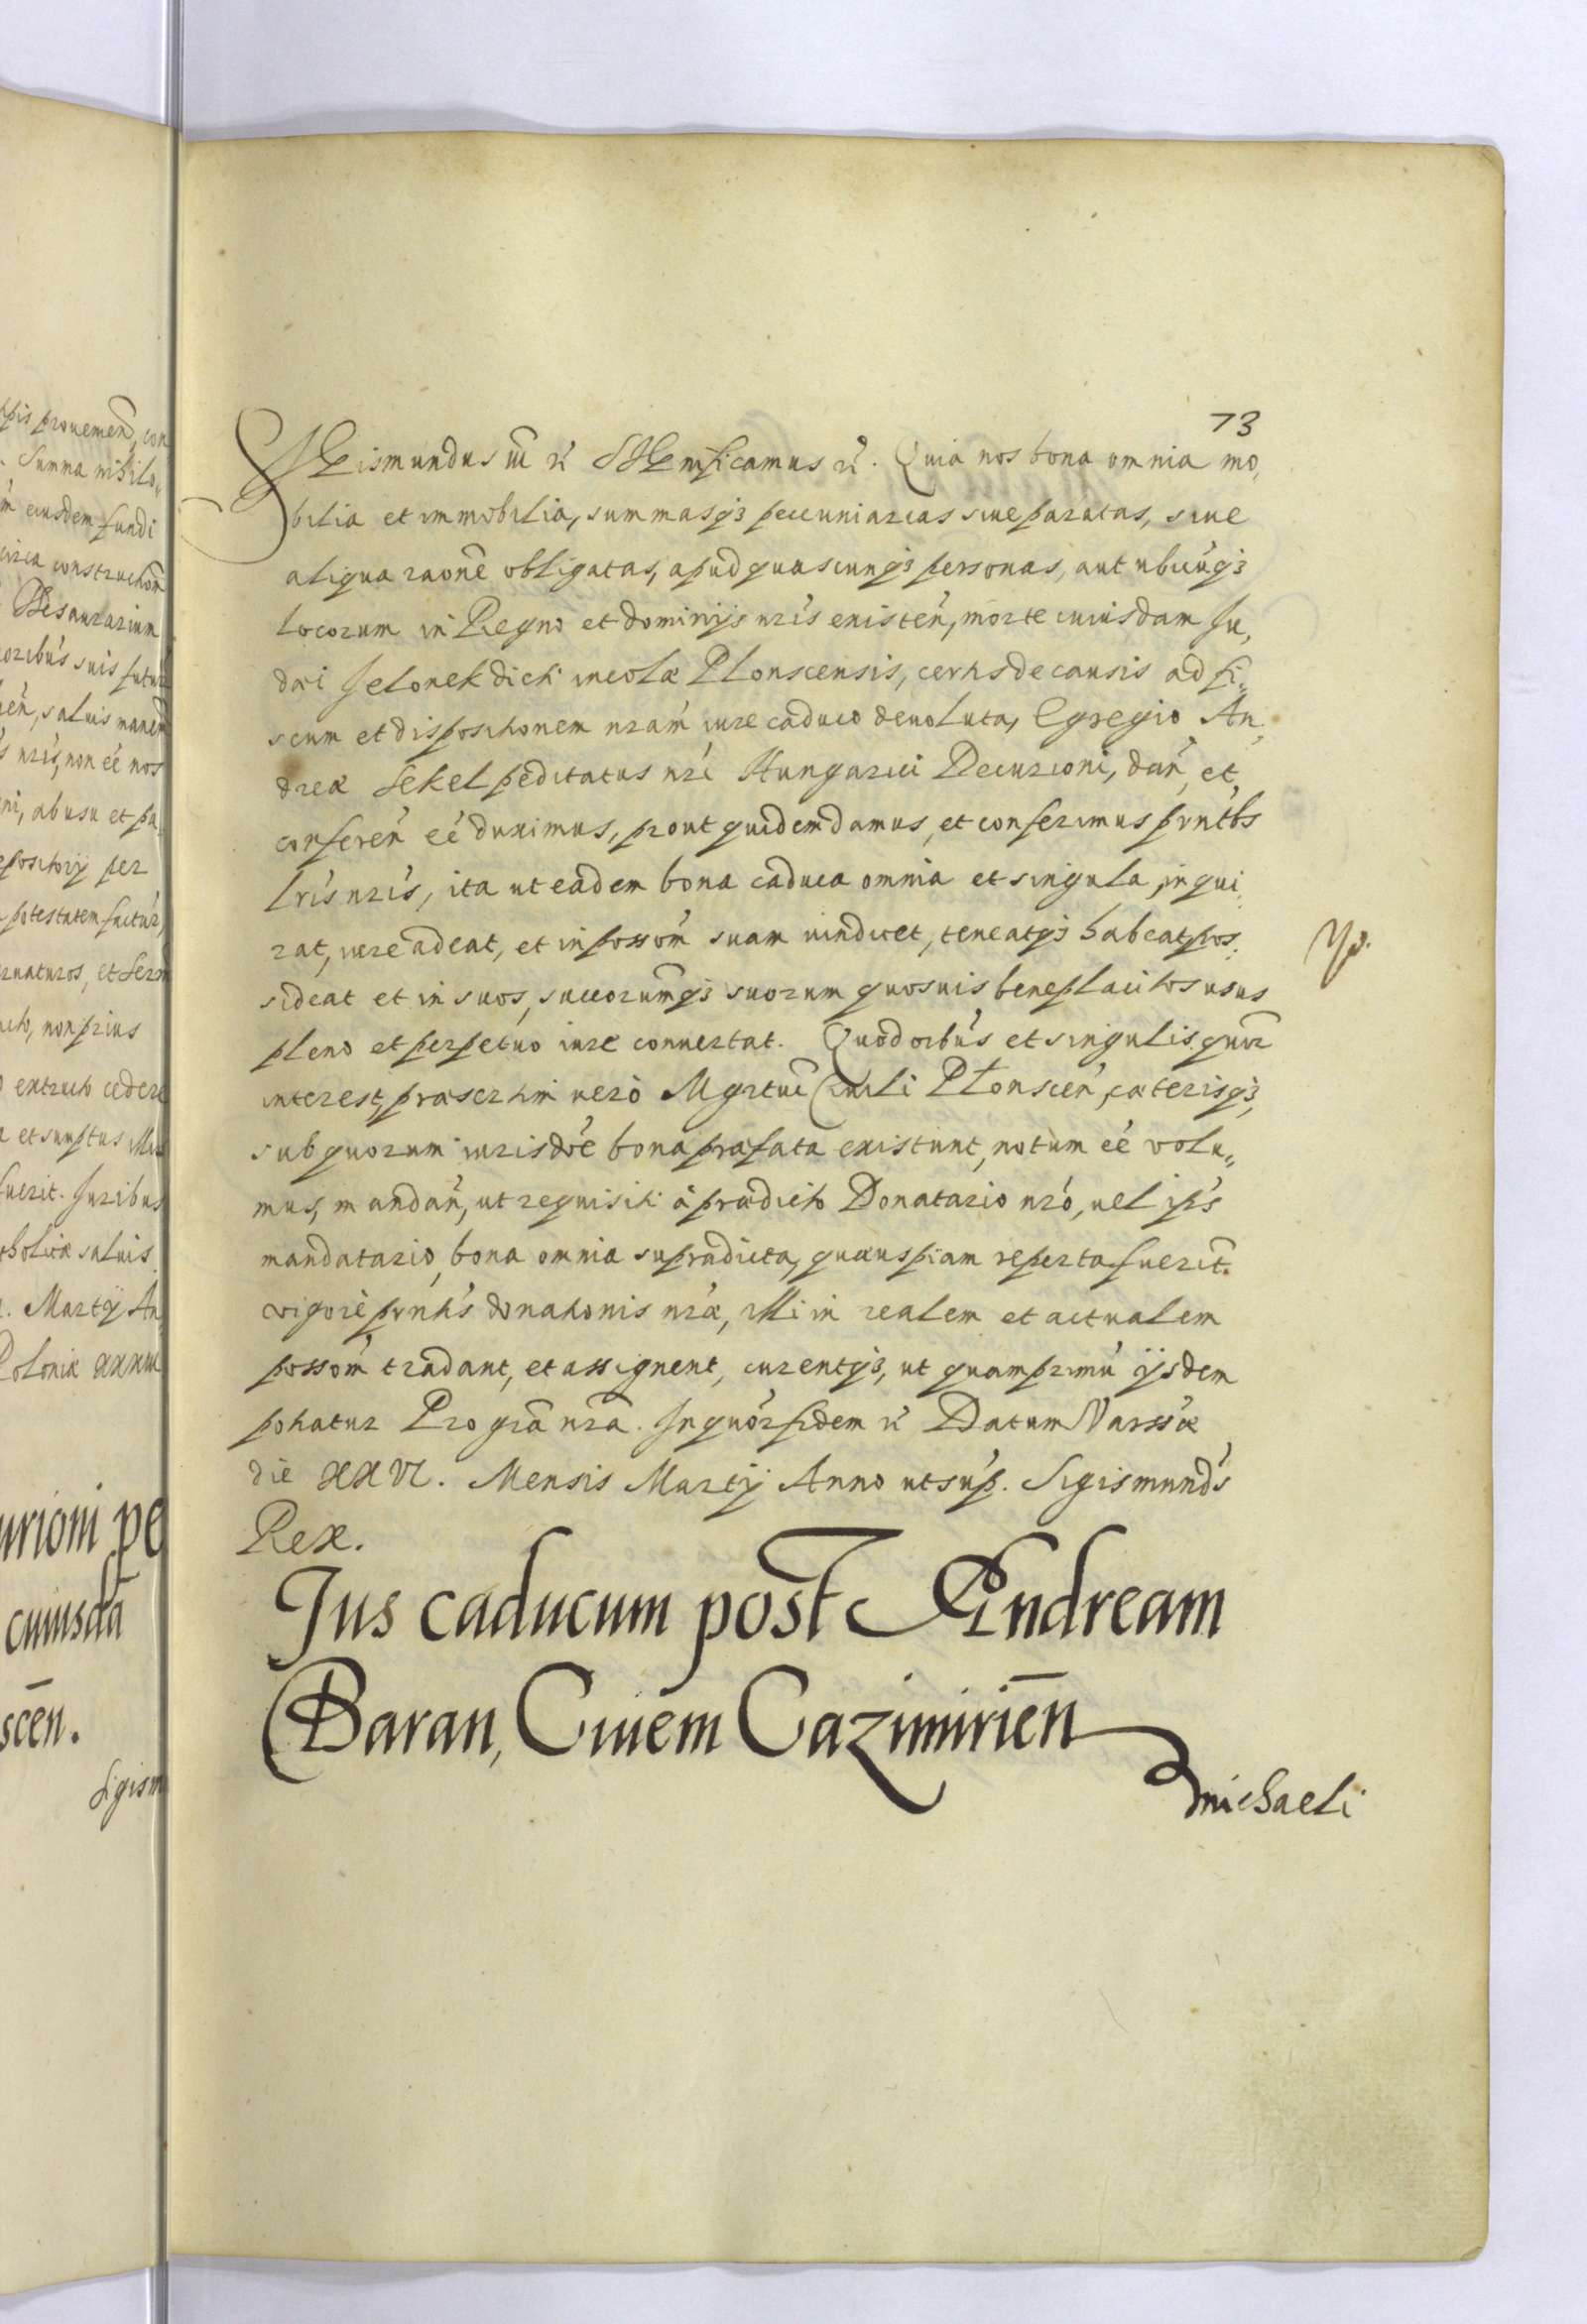 73
Sigismundus III etc. Significamus etc. Quia nos bona omnia mo,
bilia et immobilia, summasq3 pecuniarias siue paratas, siue
aliqua raone obligatas, apud quascunq3 personas, aut ubicunq3
locorum in Regno et dominijs nris existen, morte cuiusdam Ju,
dæi Jelonek dicti incolæ Plonscensis, certis de causis ad fi,,
scum et dispositionem nram iure caduco deuoluta, Egregio An,
dreæ Sekel peditatus nri Hungarici Decurioni, dan, et
conferen eé duximus, prout quidem damus, et conferimus pntbs
lris nris, ita ut eadem bona caduca omnia et singula, inqui,
rat, iure adeat, et in possom suam uindicet, teneatq3 habeat pos,
sideat et in suos, succorumq3 suorum quosuis beneplacitos usus
pleno et perpetuo iure conuertat. Quod oibus et singulis, quor
interest, præsertim uero Mgrtui Ciuili Plonscen, cæterisq3,
sub quorum iurisdoe bona præfata existunt, notum eé volu,,
mus, mandan, ut requisiti à prædicto Donatario nro, uel ips
mandatario, bona omnia supradicta, quæuspiam reperta fuerit.
vigore pntis donationis nræ, illi in realem et actualem
possom tradant, et assignent, curentq3, ut quamprimu ijsdem
potiatur Pro gra nra. In quor fidem etc. Datum Varssæ
die XXVI. Mensis Martij Anno ut sup. Sigismunds
Rex.
Jus caducum post Andream
Baran, Ciuem Cazimirien
michaeli
pis prouemen, con
Summa nihilo,,
eiusdem fundi
circa constructiom
Thesaurarium
oribus suis futur
en, saluis manen
s nris, non eé nos
ni, ab usu et pa,
epositorij per
potestatem factur,
ruaturos, et
cto, non prius
extructo cedere
et sumptus
fuerit. Juribus
tholicæ saluis.
. Martij An,
Poloniæ
urioni pe
cuiusda
scen.
Sigism